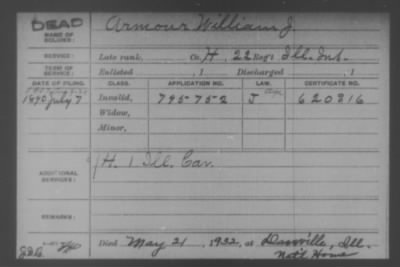 DEAD
NAME OF SOLDIER: Armour William J.
SERVICE: Late rank, Co. H, 22 Reg't Ill. Inf.
TERM OF SERVICE: Enlisted , 1 Discharged , 1
DATE OF FILING. CLASS. APPLICATION NO. LAW. CERTIFICATE NO.
1890 July 7 Invalid, 795-752 J 620816
Widow,
Minor,
ADDITIONAL SERVICES: H. 1 Ill. Cav.
REMARKS:
Died May 21, 1932, at Danville, Ill.
Nat'l Home